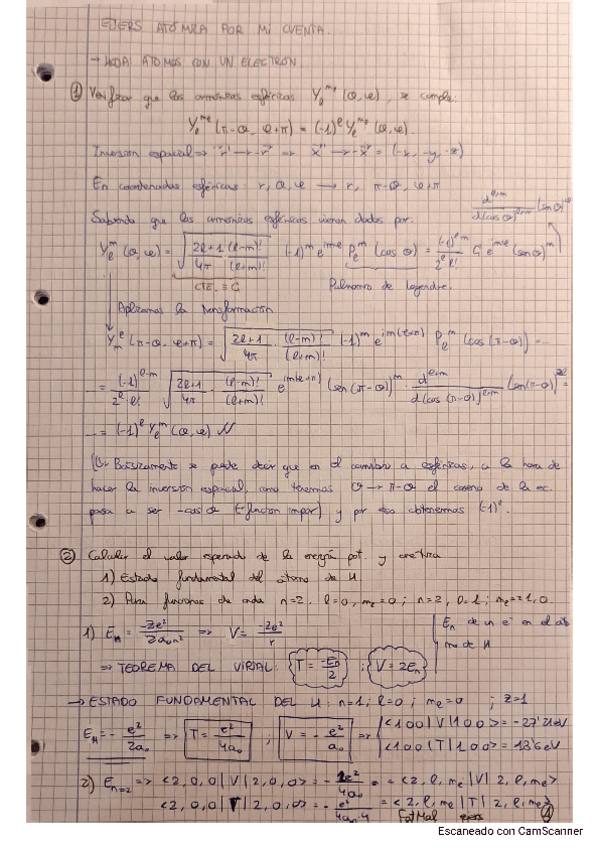 EJERS ATÓMICA POR MI CUENTA.
→ HOJA 1: ATOMOS CON UN ELECTRÓN
① Verificar que los armónicos esféricos Y_l^{m_l}(θ, φ), se cumple:
Y_l^{m_l}(π-θ, φ+π) = (-1)^l Y_l^{m_l}(θ, φ).
Inversión espacial ⇒ "r" → -r" ⇒ x⃗ → -x⃗ = (-x, -y, -z)
En coordenadas esféricas: r, θ, φ → r, π-θ, φ+π
Sabiendo que los armónicos esféricos vienen dados por:
d^{l+m}/d(cos θ)^{l+m} (sen θ)^{2l}
Y_l^m(θ, φ) = √(2l+1/4π (l-m)!/(l+m)!) (-1)^m e^{imφ} P_l^m (cos θ) = (-1)^l/2^l l! C e^{imφ} (sen θ)^m
CTE. ≡ C Polinomio de Legendre.
Aplicamos la transformación
Y_m^l(π-θ, φ+π) = √(2l+1/4π · (l-m)!/(l+m)!) (-1)^m e^{im(φ+π)} P_l^m (cos(π-θ)) = ...
... = (-1)^{l-m}/2^l·l! √(2l+1/4π (l-m)!/(l+m)!) e^{im(φ+π)} (sen(π-θ))^m · d^{l+m}/d(cos(π-θ))^{l+m} (sen(π-θ))^{2l} =
... = (-1)^l Y_l^m(θ, φ)
(Or Básicamente se puede decir que en el cambio a esféricas, a la hora de
hacer la inversión espacial, como tenemos θ → π-θ el coseno de la ec.
pasa a ser -cos θ (función impar) y por eso obtenemos (-1)^l.
② Calcular el valor esperado de la energía pot. y cinética
1) Estado fundamental del átomo de H
2) Para funciones de onda n=2, l=0, m_l=0; n=2, l=1; m_l=±1,0
1) E_n = -Ze²/2a₀n² ⇒ V = -Ze²/r
E_n de un e⁻ en el átomo de H
⇒ TEOREMA DEL VIRIAL: T = -E_n/2 ; V = 2E_n
→ ESTADO FUNDAMENTAL DEL H: n=1; l=0; m_l=0 ; Z=1
E_n = -e²/2a₀ ⇒ T = e²/4a₀ ; V = -e²/a₀ ⇒ <100|V|100> = -27'2eV
<100|T|100> = 13'6eV
2) E_{n=2} ⇒ <2,0,0|V|2,0,0> = -2e²/4a₀ = <2,l,m_l|V|2,l,m_l>
<2,0,0|T|2,0,0> = -e²/4a₀·4 = <2,l,m_l|T|2,l,m_l>
Escaneado con CamScanner